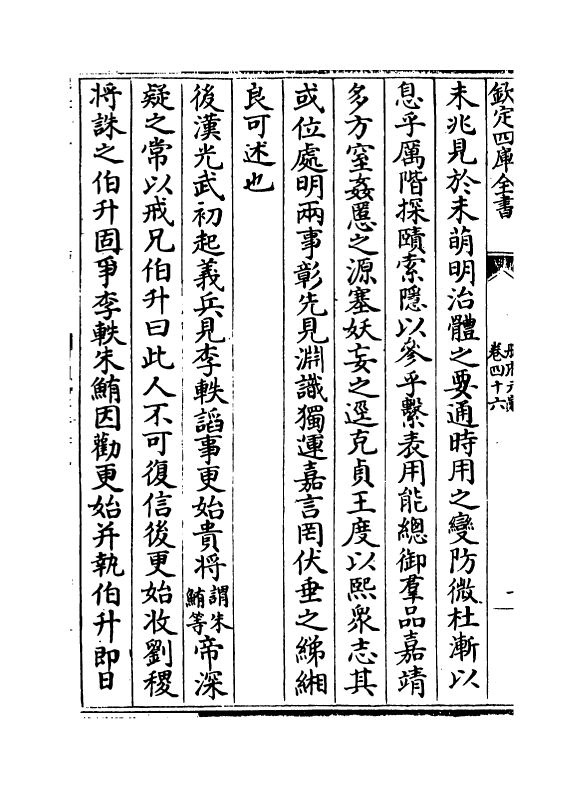 欽定四庫全書
卷四十六
未兆見於未萌明治體之要通時用之變防微杜漸以
息乎厲階探賾索隱以參乎繫表用能總御羣品嘉靖
多方窒姦慝之源塞妖妄之逕克貞王度以熙衆志其
或位處明兩事彰先見淵識獨運嘉言罔伏垂之綈緗
良可述也
後漢光武初起義兵見李軼謟事更始貴將謂朱鮪等帝深
疑之常以戒兄伯升曰此人不可復信後更始收劉稷
將誅之伯升固爭李軼朱鮪因勸更始并執伯升即日